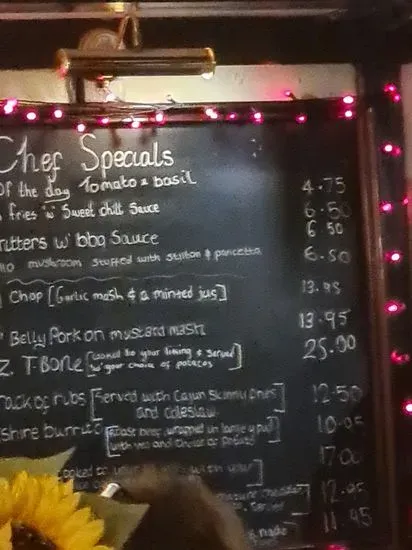 Chef Specials
Of the day Tomato & basil 4.75
fries 'w' Sweet chilli Sauce 6.50
ritters w' bbq Sauce 6.50
mushroom stuffed with stilton & pancetta 6.50
Chop [Garlic mash & a minted jus] 13.95
Belly Pork on mustard mash 13.95
Z. T-Bone [cooked to your liking & served 25.00
w' your choice of potatoes]
rack of ribs [Served with Cajun Skinny fries 12.50
and coleslaw]
shire burrito [Roast beef, wrapped in large yorkie 10.95
with veg and choice of potato]
to your with your 17.0
12.95
11.45